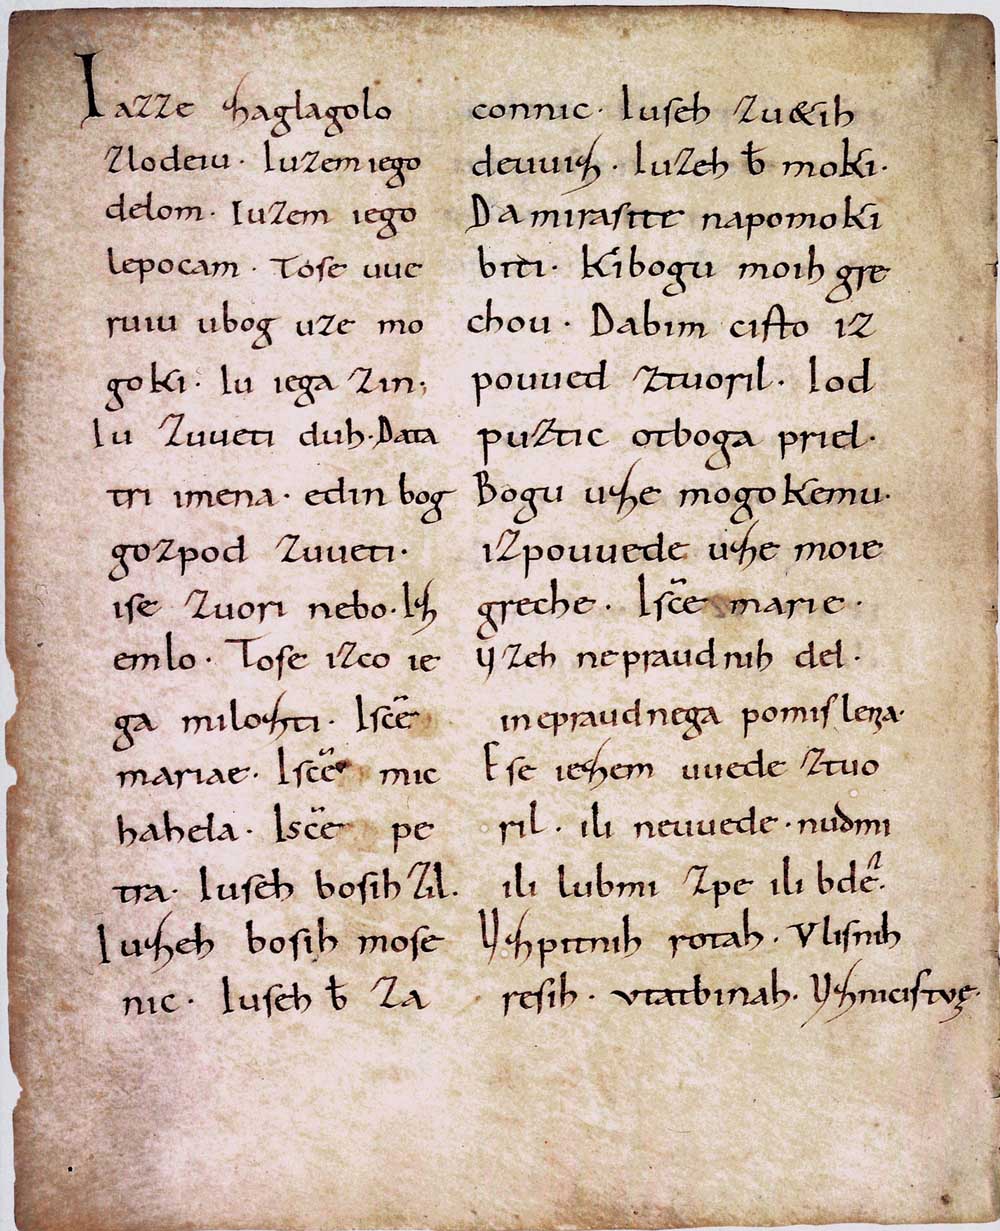 Iazze zaglagolo
zlodeiu. Iuzem iego
delom. Iuzem iego
lepocam. Tose uue
ruiu ubog uze mo
goki. Iu iega zin;
Iu zuueti duh. Data
tri imena. edin bog
gozpod zuueti.
ise zuori nebo. Iz
emlo. Tose izco ie
ga milozti. Isc̄e
mariae. Isc̄e mic
hahela. Isc̄e pe
tra. Iuseh bosih zil.
Iuzeh bosih mose
nic. Iuseh b̄ za
connic. Iuseh zu&ih
deuuiz. Iuzeh b̄ moki.
Da mirasite napomoki
biti. Kibogu moih gre
chou. Dabim cisto iz
pouued ztuoril. Iod
puztic otboga priel.
Bogu uze mogokemu.
izpouuede uze moie
greche. Isc̄e marie.
Uzeh nepraudnih del.
inepraudnega pomislena.
Ese iezem uuede ztuo
ril. ili neuuede. nudmi
ili lubmi zpe ili bde.
Uzpitnih rotah. Vlisnih
resih. vtatbinah. Uznicistve.